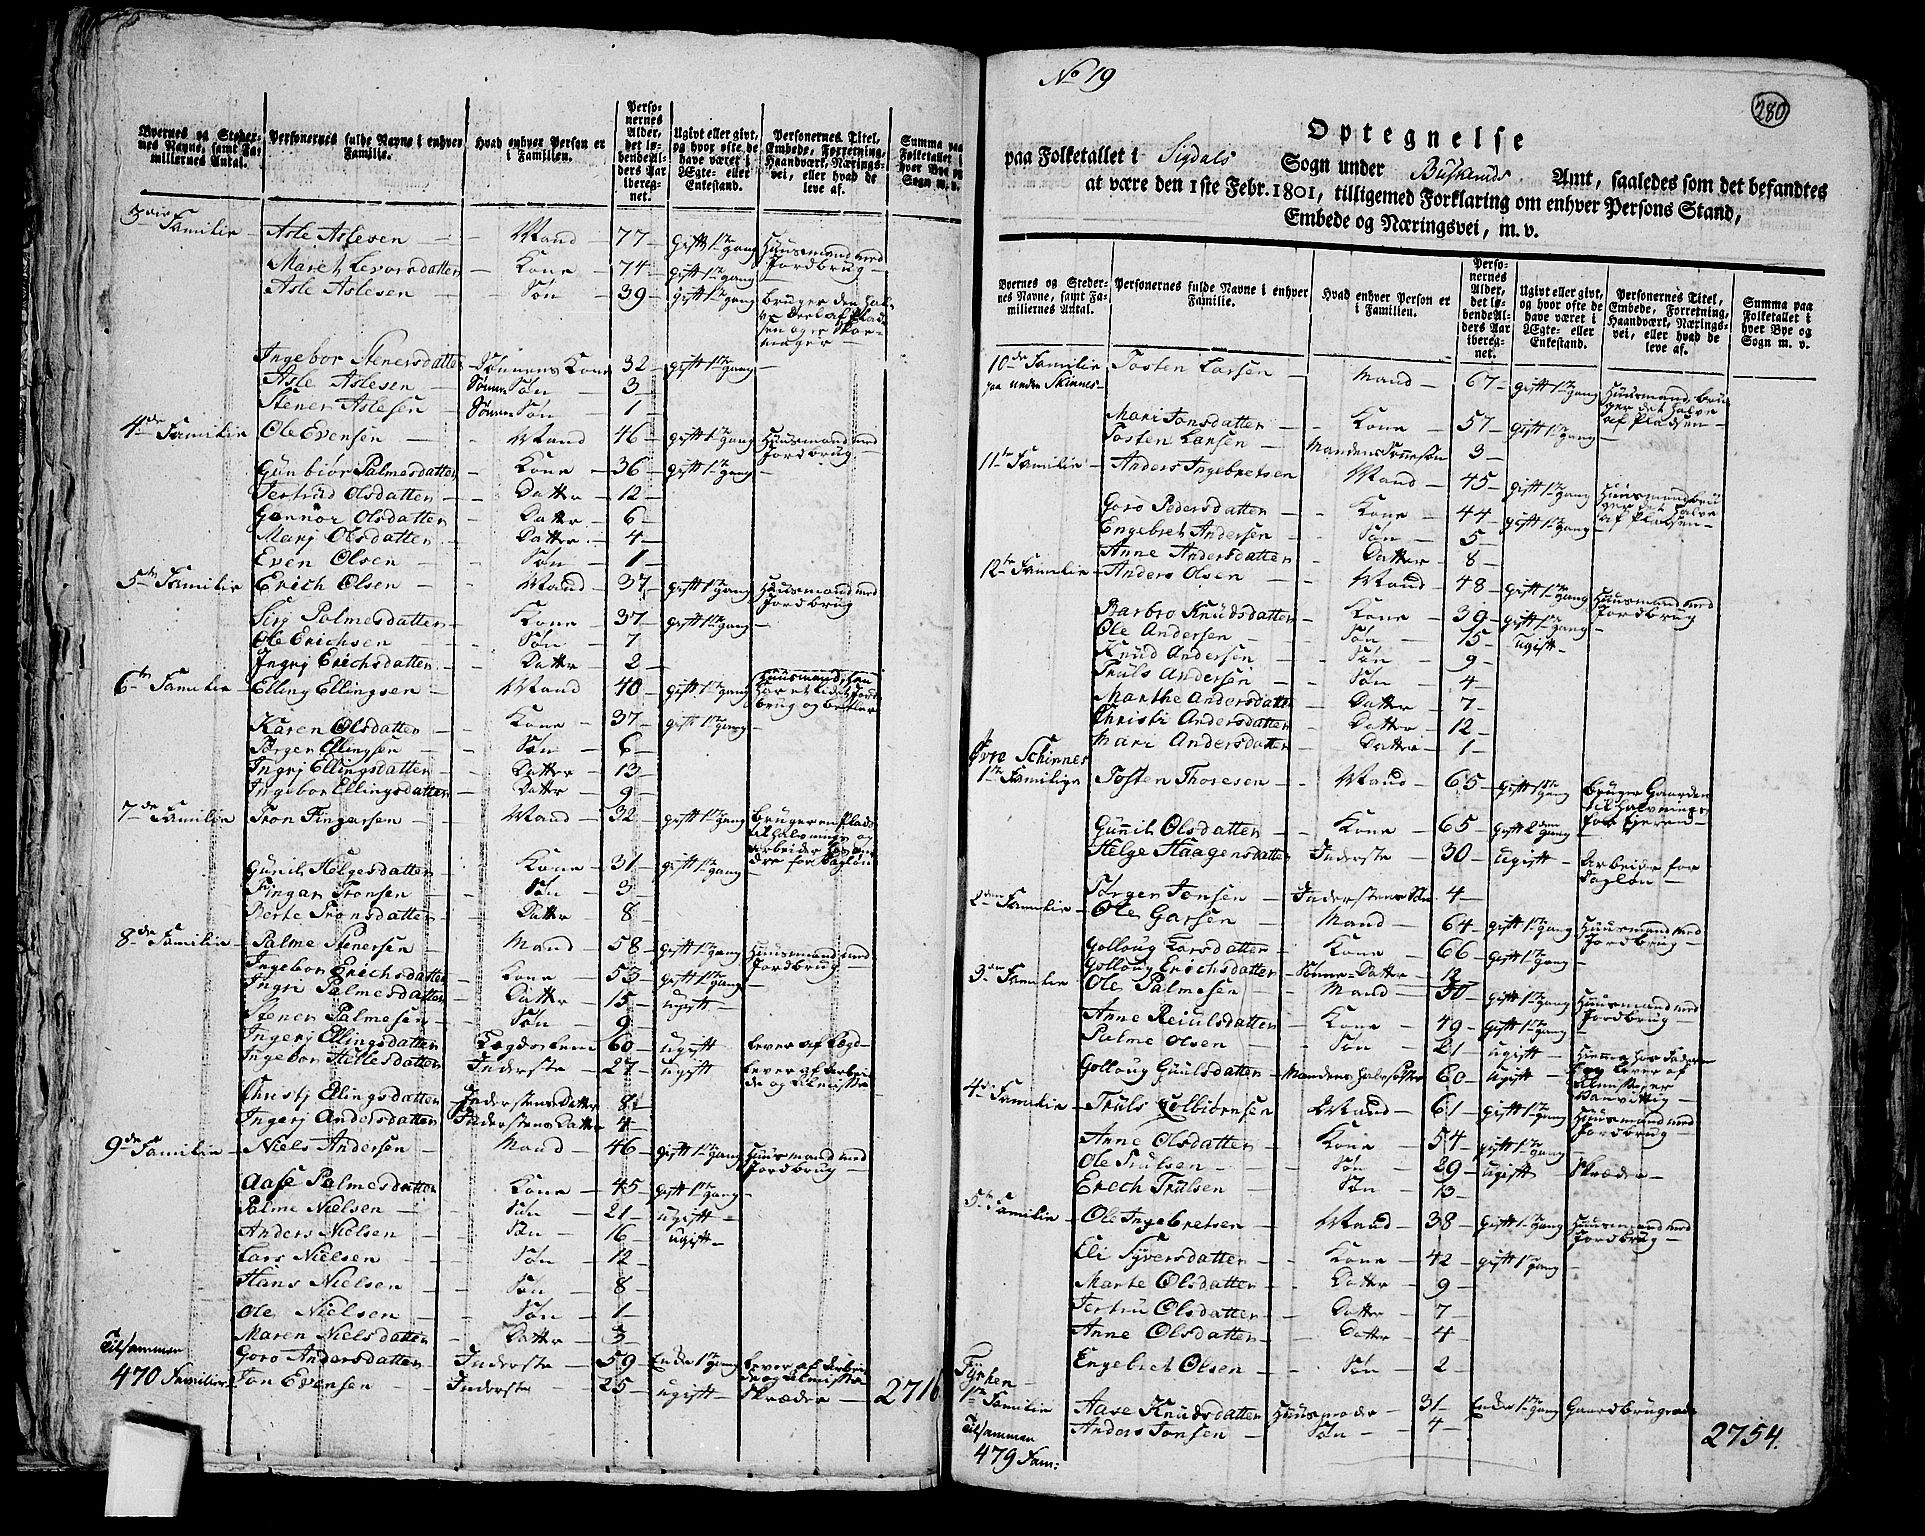 Byernes og Steder-
nes Navne, samt Fa-
miliernes Antal.
Personernes fulde Navne i enhver
Familie.
Hvad enhver Person er
i Familien.
Perso-
nernes
Alder,
det lø-
bende Al-
ders Aar
ibereg-
net.
Ugivt eller givt,
og hvor ofte de
have været i
Ægte- eller
Enkestand.
Personernes Titel,
Embede, Forretning,
Haandværk, Nærings-
vei, eller hvad de
leve af.
Summa paa
Folketallet i
hver Bye og
Sogn m. v.
3die Familie Asle Aslesen Mand 77 gift 1te gang Huusmand med Jordbrug
Maret Levorsdatter Kone 74 gift 1te gang
Asle Aslesen Søn 39 gift 1te gang bruger den hal-
ve Deel af Plad-
sen og er Skoe-
mager
Ingebor Stenersdatter Sønnens Kone 32 gift 1te gang
Asle Aslesen Sønne Søn 3
Stener Aslesen Sønne Søn 1
4de Familie Ole Evensen Mand 46 gift 1te gang Huusmand med Jordbrug
Gunbior Palmesdatter Kone 36 gift 1te gang
Jertrud Olsdatter Datter 12
Gunnor Olsdatter Datter 6
Marj Olsdatter Datter 4
Even Olsen Søn 1
5te Familie Erich Olsen Mand 37 gift 1te gang Huusmand med Jordbrug
Sirj Palmesdatter Kone 37 gift 1te gang
Ole Erichsen Søn 7
Ingrj Erichsdatter Datter 2
6te Familie Elling Ellingsen Mand 40 gift 1te gang Huusmand,
har et lidet Jord-
brug og betler
Karen Olsdatter Kone 37 gift 1te gang
Børger Ellingsen Søn 6
Ingrj Ellingsdatter Datter 13
Ingebor Ellingsdatter Datter 9
7de Familie Tron Fingarsen Mand 32 gift 1te gang bruger en Plads
til halvning og
arbeider
for Dagløn
Gunil Helgesdatter Kone 31 gift 1te gang
Fingar Tronsen Søn 3
Berte Tronsdatter Datter 8
8de Familie Palme Stenersen Mand 58 gift 1te gang Huusmand med Jordbrug
Ingebor Erichsdatter Kone 53 gift 1te gang
Ingri Palmesdatter Datter 15 ugift
Stener Palmesen Søn 9
Ingerj Ellingsdatter Lægdslem 60 ugift lever af Lægd
Ingebor Hellesdatter Inderste 27 ugift lever af Arbei-
de og Almisse
Christj Ellingsdatter Inderstens Datter 8
Ingerj Andersdatter Inderstens Datter 4
9de Familie Niels Andersen Mand 46 gift 1te gang Huusmand med Jordbrug
Aase Palmesdatter Kone 45 gift 1te gang
Palme Nielsen Søn 21 ugift
Anders Nielsen Søn 16 ugift
Lars Nielsen Søn 12
Hans Nielsen Søn 8
Ole Nielsen Søn 1
Maren Nielsdatter Datter 3
Goro Andersdatter Inderste 59 Enke 1te gang lever af Arbei-
de og Almisse
Tilsammen
470 Familier Jon Evensen Inderste 25 ugift Skræder 2716
No 19
280
Optegnelse
paa Folketallet i Sigdals Sogn under Buskeruds Amt, saaledes som det befandtes
at være den 1ste Febr. 1801, tilligemed Forklaring om enhver Persons Stand,
Embede og Næringsvei, m. v.
Byernes og Steder-
nes Navne, samt Fa-
miliernes Antal.
Personernes fulde Navne i enhver
Familie.
Hvad enhver Person er
i Familien.
Perso-
nernes
Alder,
det lø-
bende Al-
ders Aar
ibereg-
net.
Ugivt eller givt,
og hvor ofte de
have været i
Ægte- eller
Enkestand.
Personernes Titel,
Embede, Forretning,
Haandværk, Nærings-
vei, eller hvad de
leve af.
Summa paa
Folketallet i
hver Bye og
Sogn m. v.
10de Familie Tosten Larsen Mand 67 gift 1te gang Huusmand, bru-
paa under Skinnes ger det halve
af Pladsen
Mari Jonsdatter Kone 57 gift 1te gang
Tosten Larsen Mandens Sønnesøn 3
11te Familie Anders Ingebretsen Mand 45 gift 1te gang Huusmand bru-
ger det halve
af Pladsen
Goro Pedersdatter Kone 44 gift 1te gang
Engebret Andersen Søn 5
Anne Andersdatter Datter 8
12te Familie Anders Olsen Mand 48 gift 1te gang Huusmand med Jordbrug
Barbro Knudsdatter Kone 39 gift 1te gang
Ole Andersen Søn 15 ugift
Knud Andersen Søn 9
Truls Andersen Søn 4
Marthe Andersdatter Datter 7
Christi Andersdatter Datter 12
Mari Andersdatter Datter 1
Øvre Schinnes
1te Familie Tosten Thoresen Mand 65 gift 1te gang bruger Gaarden
til halvning
for Eieren
Gunil Olsdatter Kone 65 gift 2den gang
Helge Haagensdatter Inderste 30 ugift Arbeider for
Dagløn
Børger Jonsen Inderstens Søn 4
2den Familie Ole Garsen Mand 64 gift 1te gang Huusmand med Jordbrug
Golloug Larsdatter Kone 66 gift 1te gang
Golloug Erichsdatter Sønne-Datter 12
3die Familie Ole Palmesen Mand 50 gift 1te gang Huusmand med Jordbrug
Anne Reiulsdatter Kone 49 gift 1te gang
Palme Olsen Søn 21 ugift Hiemme hos Fader
Golloug Guulsdatter Mandens halvsøster 60 ugift lever af
Almisse er
vanvittig
4de Familie Truls Colbiørnsen Mand 61 gift 1te gang Huusmand med Jordbrug
Anne Olsdatter Kone 54 gift 1te gang
Ole Trulsen Søn 29 ugift Skræder
Erech Trulsen Søn 13
5te Familie Ole Ingebretsen Mand 38 gift 1te gang Huusmand med Jordbrug
Eli Syversdatter Kone 42 gift 1te gang
Marte Olsdatter Datter 9
Jertru Olsdatter Datter 7
Anne Olsdatter Datter 4
Engebret Olsen Søn 2
Fyrhen
1te Familie Aase Knudsdatter Huusmoder 31 Enke 1te gang Gaardbruger
Tilsammen Anders Jonsen Søn 4
479 Fam: 2754.